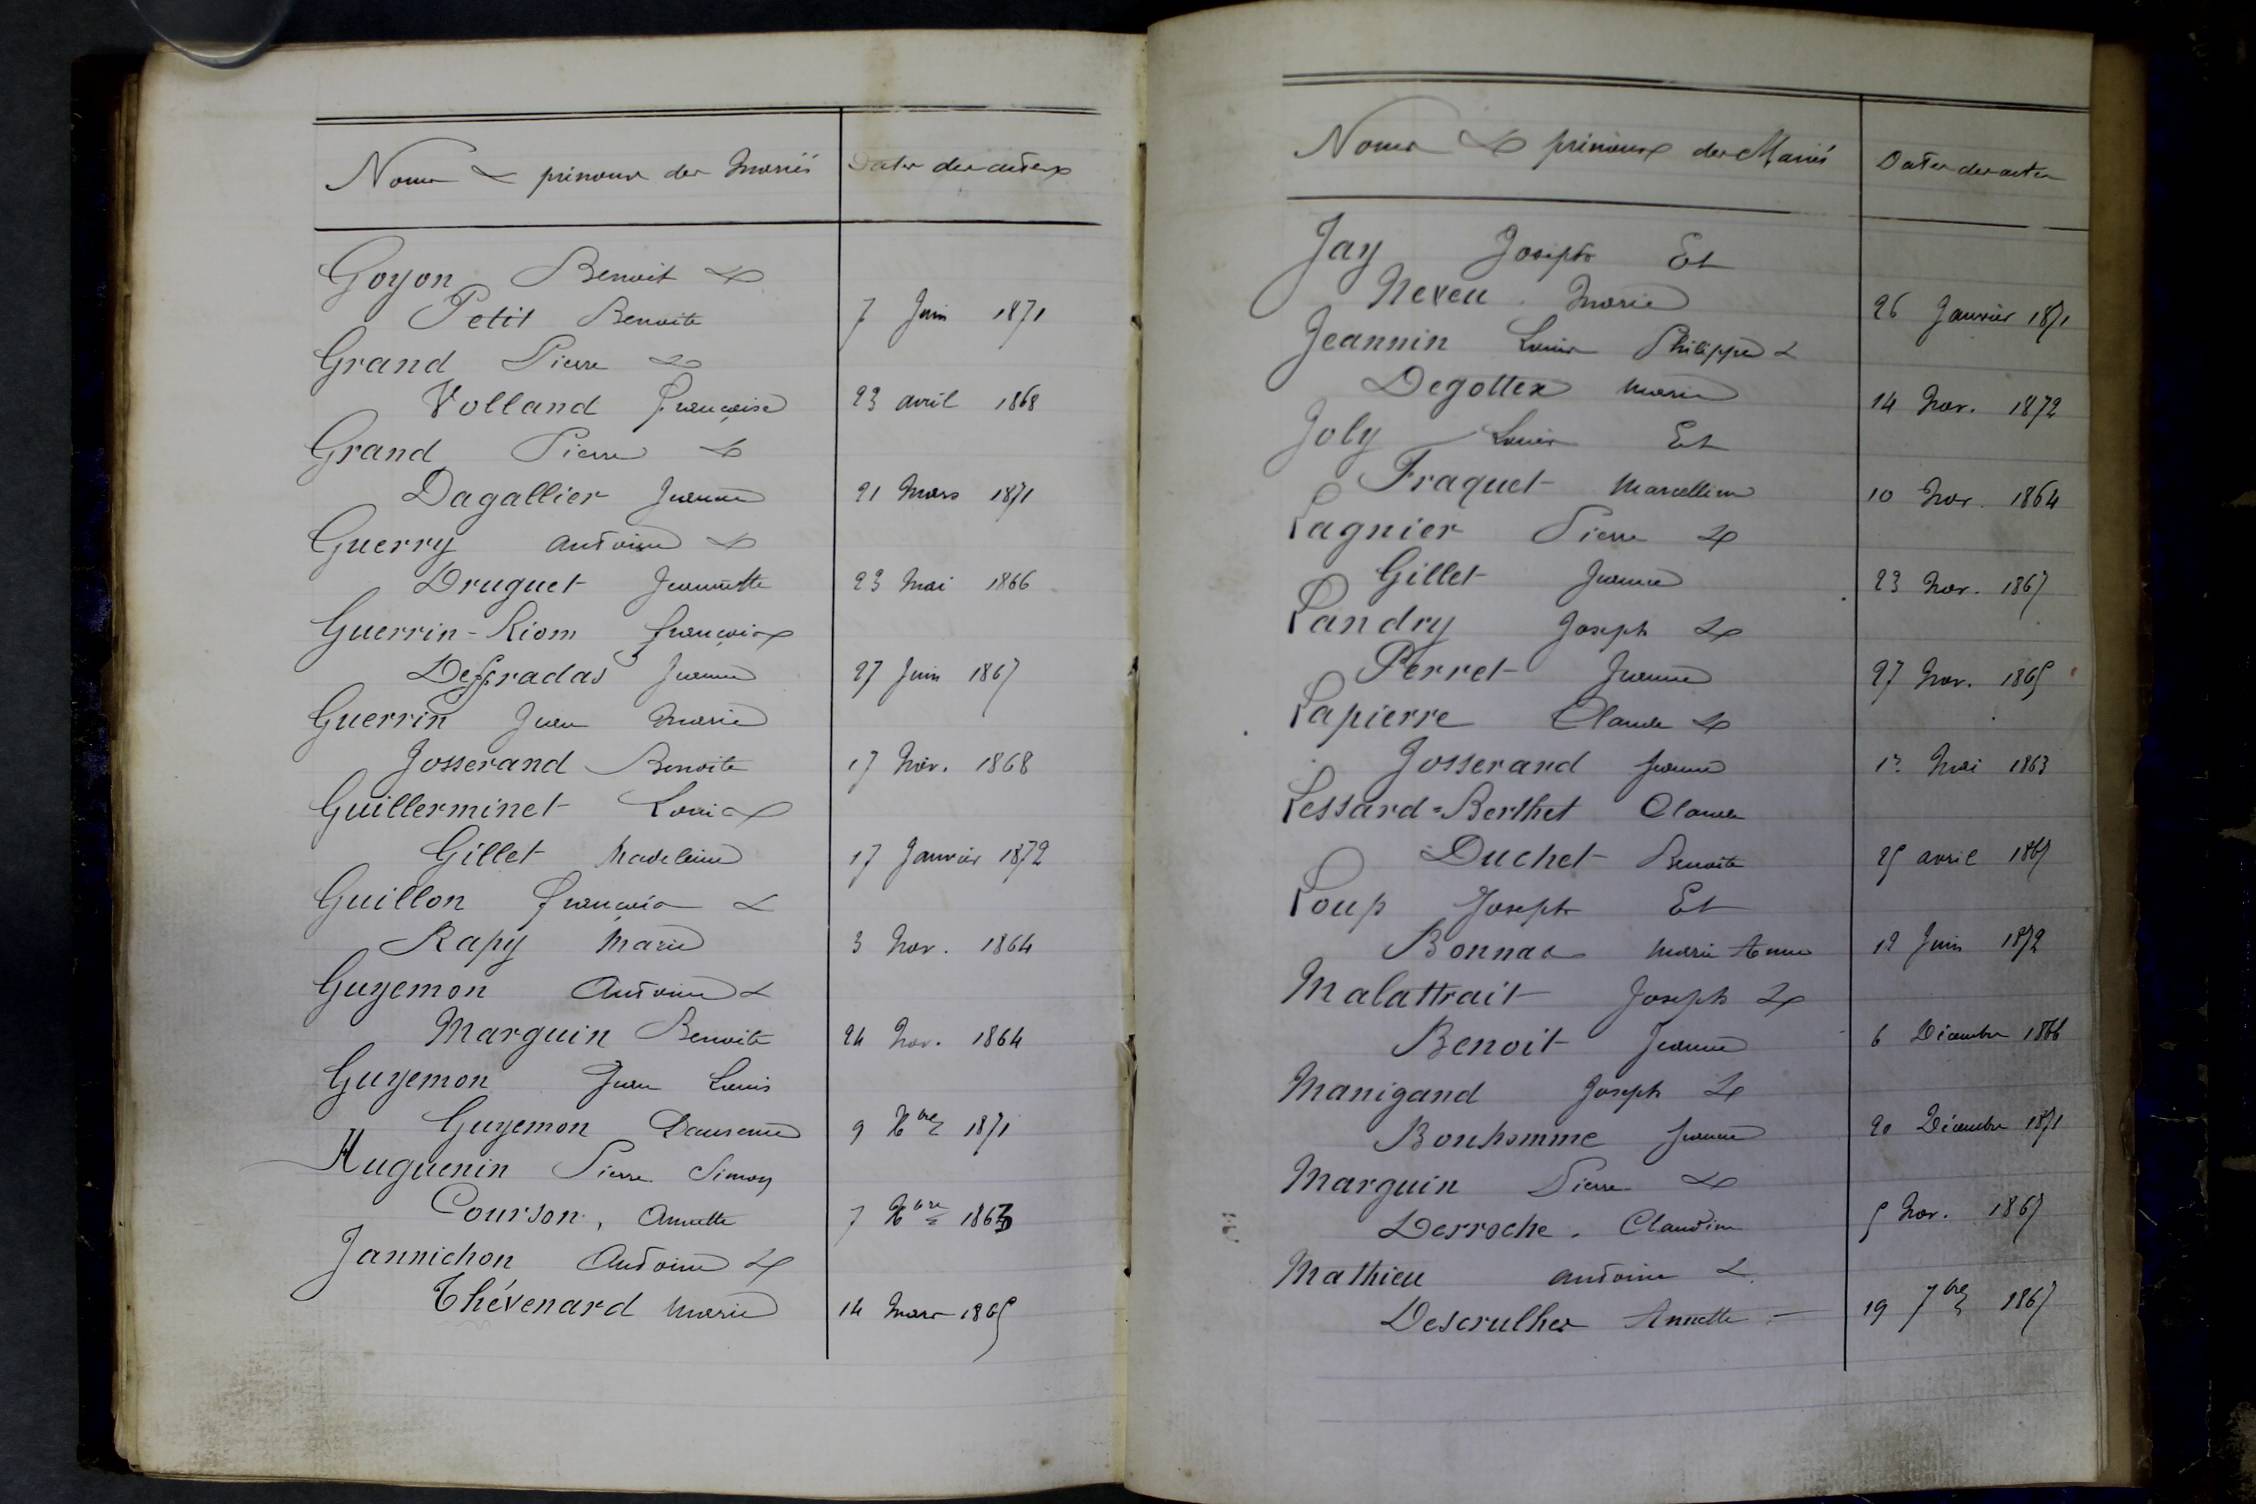 Noms & prénoms des Mariés Dates des actes
Goyon Benoit &
Petit Benoite 7 Juin 1871
Grand Pierre &
Volland Françoise 23 avril 1868
Grand Pierre &
Dagallier Jeanne 21 Mars 1871
Guerry antoine &
Druguet Jeannette 23 Mai 1866
Guerrin-Riom françois
Desgradas Jeanne 27 Juin 1867
Guerrin Jean Marie
Josserand Benoite 17 Nov. 1868
Guillerminet Louis
Gillet Madeleine 17 Janvier 1872
Guillon françois &
Rapy Marie 3 Nov. 1864
Guyemon Antoine &
Marguin Benoite 24 Nov. 1864
Guyemon Jean Louis
Guyemon 9 Xbre 1871
Huguenin Pierre Simon
Courson, Annette 7 Xbre 1863
Jannichon Antoine &
Thévenard Marie 14 Mars 1865
Noms & prénoms des Mariés Dates des actes
Jay Joseph Et
Neveu Marie 26 Janvier 1871
Jeannin Louis Philippe &
Degottex Marie 14 Nov. 1872
Joly Louis Et
Fraquet Marcelline 10 Nov. 1864
Lagnier Pierre &
Gillet Jeanne 23 Nov. 1867
Landry Joseph &
Perret Jeanne 27 Nov. 1865
Lapierre Claude &
Josserand Jeanne 1er Mai 1863
Lessard=Berthet Claude
Duchet Benoite 25 avril 1867
Loup Joseph Et
Bonnas Marie Anne 12 Juin 1872
Malattrait Joseph &
Benoit Jeanne 6 Décembre 1866
Manigand Joseph &
Bonhomme Jeanne 20 Décembre 1871
Marguin Pierre &
Derroche. Claudine 5 Nov. 1867
Mathieu antoine &
Descrulhes Annette 19 7bre 1867